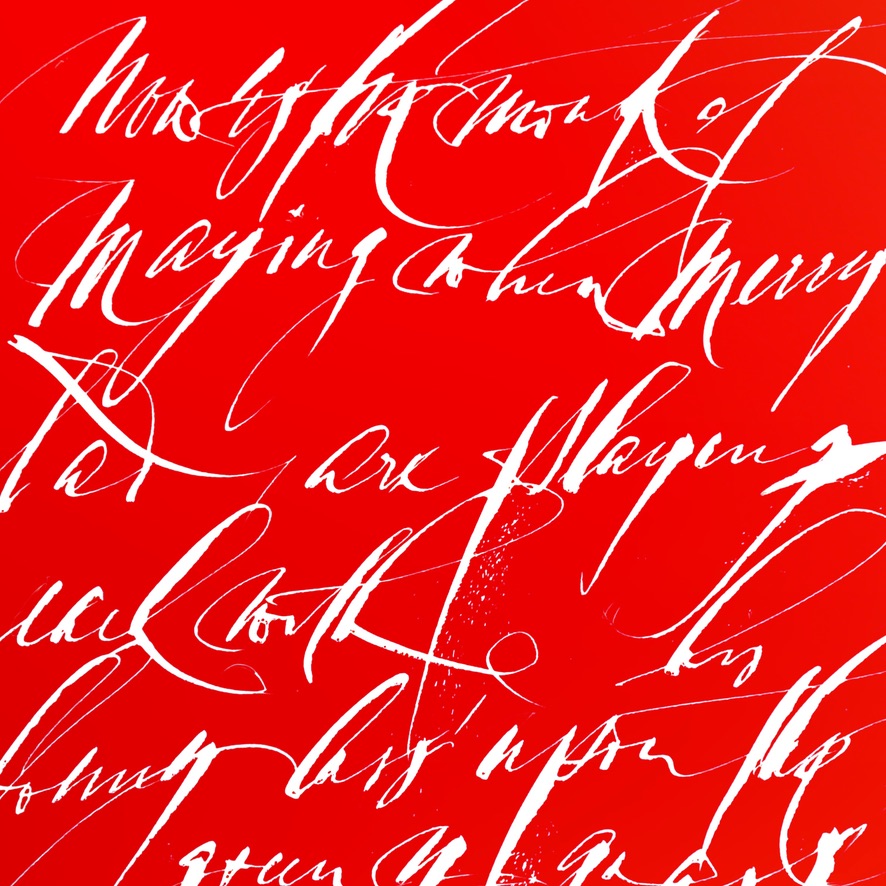 Now is the month of
Maying when Merry
lads are playing
each with his
bonny lass upon the
green grass